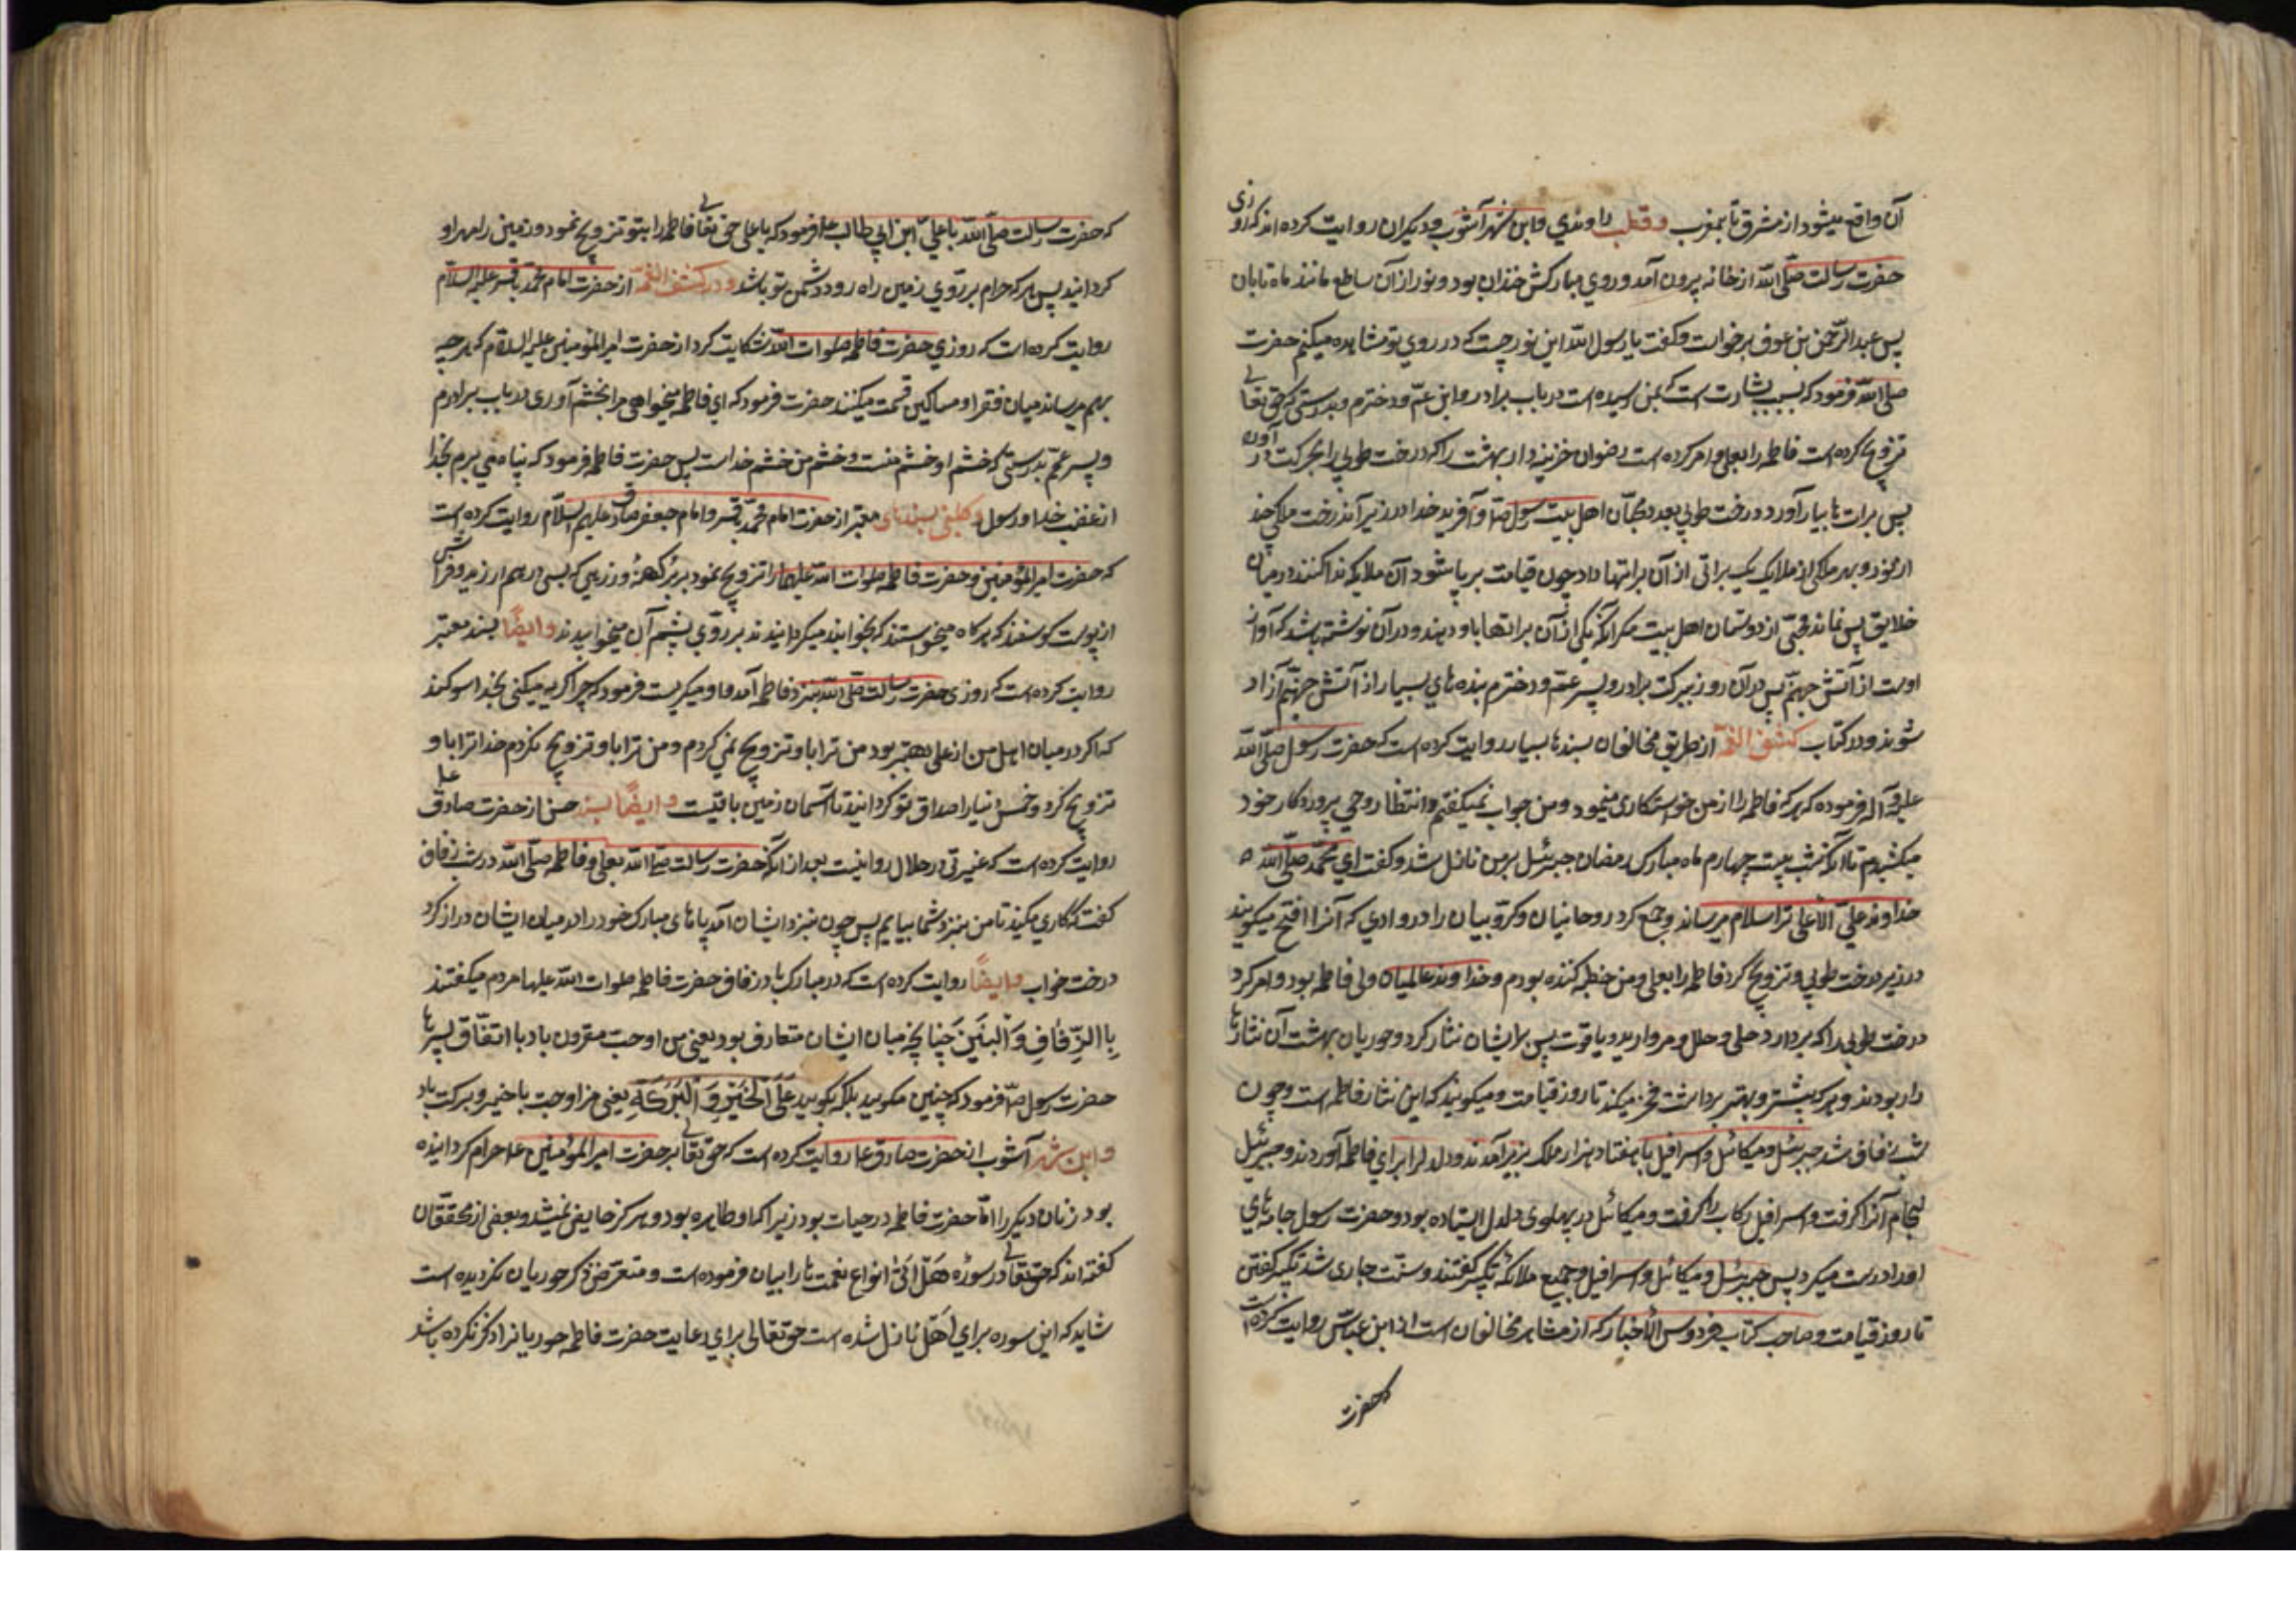 آن واقع میشود از مشرق تا بمغرب و قطب راوندي و ابن شهر آشوب و دیکران روایت کرده اند که روزی
حضرت رسالت صلّی اللّه از خانه بیرون آمد و روي مبارکش خندان بود و نور از آن ساطع مانند ماه تابان
پس عبد الرّحمن بن عوف برخواست و کفت یا رسول اللّه این نور چیست که در روي تو مشاهده میکنم حضرت
صلی اللّه فرمود که بسبب بشارت است که بمن رسیده است در باب برادر و ابن عمّ و دخترم و بدرستی که حق تعالی
تزویج کرده است فاطمه را بعلی و امر کرده است رضوان خزینه دار بهشت را که درخت طوبی را بحرکت در آورد
پس برات ها بیار آورد درخت طوبی بعدد محبّان اهل بیت رسول صلّا و آفرید خدا در زیر آن درخت ملکی چند
از نور و بهر ملکی از ملایک یک براتی از آن براتها داد چون قیامت بر پا شود آن ملایکه ندا کنند در میان
خلایق پس نماند محبّی از دوستان اهل بیت مکر آنکه یکی از آن براتها باو دهند و در آن نوشته باشد که آواز
اوست از آتش جهنّم پس در آن روز ببرکت برادر و پسر عمّ و دخترم بنده هاي بسیار از آتش جهنّم آزاد
شوند و در کتاب کشف الغمّه از طریق مخالفان بسندها بسیار روایت کرده است که حضرت رسول صلّی اللّه
علیه و آله فرموده که هر که فاطمه را از من خواستکاری مینمود من جواب نمیکفتم و انتظار وحی پروردکار خود
میکشیدم تا آنکه شب بیست چهارم ماه مبارک رمضان جبرئیل بر من نازل شد و کفت اي محمّد صلّی اللّه
خداوند علیّ الأعلی ترا سلام میرساند و جمع کرد روحانیان و کرّوبیان را در وادي که آنرا افیح میکویند
در زیر درخت طوبی و تزویج کرد فاطمه را بعلی و من خطبه کننده بودم و خداوند عالمیان ولی فاطمه بود و امر کرد
درخت طوبی را که بردارد حلی و حلل و مروارید و یاقوت پس برایشان نثار کرد و حوریان بهشت آن نثارها
دار بودند و هر که بیشتر و بهتر برداشت فخر میکند تا روز قیامت و میکویند که این نثار فاطمه است و چون
شب زفاف شد جبرئیل و میکائیل و اسرافیل با هفتاد هزار ملک بزیر آمدند و دلدل را برای فاطمه آوردند و جبرئیل
لجام آنرا کرفت و اسرافیل رکاب را کرفت و میکائیل در پهلوی دلدل ایستاده بود و حضرت رسول جامه هاي
او را درست میکرد پس جبرئیل و میکائیل و اسرافیل و جمیع ملائکه تکبیر کفتند و سنّت جاری شد تکبیر کفتن
تا روز قیامت و صاحب کتاب فردوس الأخبار که از مشاهیر مخالفان است از ابن عبّاس روایت کرده است
که حضرت
که حضرت رسالت صلّی اللّه با علیّ ابن ابی طالب علا فرمود که یا علی حق تعالی فاطمه را بتو تزویج نمود و زمین را مهر او
کردانید پس هر که حرام بر روي زمین راه رود و دشمن تو باشد و در کشف الغمّه از حضرت امام محمّد باقر علیه السّلام
روایت کرده است که روزي حضرت فاطمه صلوات اللّه شکایت کرد از حضرت امیر المؤمنین علیه السلام که هر چه
بهم میرساند میان فقرا و مساکین قسمت میکنند حضرت فرمود که اي فاطمه میخواهی مرا بخشم آوری در باب برادرم
و پسر عمّم بدرستی که خشم او خشم منست و خشم من خشم خداست پس حضرت فاطمه فرمود که پناه می برم بخدا
از غضب خدا و رسول و کلینی بسندهای معتبر از حضرت امام محمّد باقر و امام جعفر صادق علیهم السّلام روایت کرده است
که حضرت امیر المؤمنین و حضرت فاطمه صلوات اللّه علیهما را تزویج نمود بر برد کهنه و زرهی که بسی درهم ارزید و فراش
از پوست کوسفند که هر کاه میخواستند که بخوابند میکردانیدند بر روي پشم آن میخوابیدند و ایضًا بسند معتبر
روایت کرده است که روزی حضرت رسالت صلّی اللّه بنزد فاطمه آمد و او میکریست فرمود که چرا کریه میکنی بخدا سوکند
که اکر در میان اهل من از علی بهتر بود من ترا باو تزویج نمی کردم و من ترا باو تزویج نکردم خدا ترا باو
تزویج کرد و خمس دنیا را صداق تو کردانید تا آسمان و زمین باقیست و ایضًا بسند حسن از حضرت صادق علیه
روایت کرده است که غیرتی در حلال روا نیست بعد از آنکه حضرت رسالت صلّی اللّه بعلی و فاطمه صلّی اللّه در شب زفاف
کفت که کاری مکنید تا من بنزد شما بیایم پس چون بنزد ایشان آمد پاهای مبارک خود را در میان ایشان دراز کرد
در رخت خواب و ایضًا روایت کرده است که در مبارک باد زفاف حضرت فاطمه صلوات اللّه علیها مردم میکفتند
بِاالرِّفَافِ وَ البَنَینَ چنانچه میان ایشان متعارف بود یعنی من اوجت مقرون باد با اتّفاق پسرها
حضرت رسول صلّا فرمود که چنین مکویید بلکه بکویید عَلَی الخَیرِ وَ البَرَکَةِ یعنی مزاوجت با خیر و برکت باد
و ابن شهر آشوب از حضرت صادق علا روایت کرده است که حق تعالی بر حضرت امیر المؤمنین علا حرام کردانیده
بود زنان دیکر را تا حضرت فاطمه در حیات بود زیرا که او طاهره بود و هر کز حایض نمیشد و بعضی از محقّقان
کفته اند که حق تعالی در سوره هَل اَتی انواع نعمت ها را بیان فرموده است و متعرّض ذکر حوریان نکردیده است
شاید که این سوره براي اهل نازل شده است حق تعالی براي رعایت حضرت فاطمه حوریانرا ذکر نکرده باشد